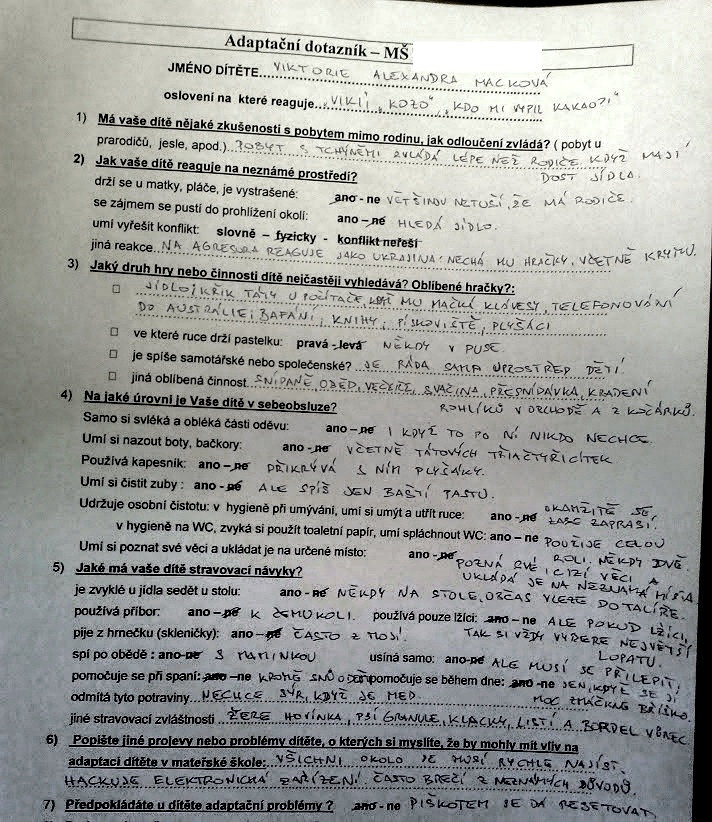 Adaptační dotazník – MŠ
JMÉNO DÍTĚTE VIKTORIE ALEXANDRA MACKOVÁ
oslovení na které reaguje „VIKI", „KOZO", „KDO MI VYPIL KAKAO?!"
1) Má vaše dítě nějaké zkušenosti s pobytem mimo rodinu, jak odloučení zvládá? ( pobyt u
prarodičů, jesle, apod.) POBYT S TCHÝNĚMI ZVLÁDÁ LÉPE NEŽ RODIČE. KDYŽ MAJÍ
DOST JÍDLA.
2) Jak vaše dítě reaguje na neznámé prostředí?
drží se u matky, pláče, je vystrašené: ano - ne VĚTŠINOU NETUŠÍ, ŽE MÁ RODIČE.
se zájmem se pustí do prohlížení okolí: ano – ne HLEDÁ JÍDLO.
umí vyřešit konflikt: slovně – fyzicky - konflikt neřeší
jiná reakce NA AGRESORA REAGUJE JAKO UKRAJINA: NECHÁ MU HRAČKY, VČETNĚ KRYMU.
3) Jaký druh hry nebo činnosti dítě nejčastěji vyhledává? Oblíbené hračky?:
JÍDLO, KŘIK TÁTY U POČÍTAČE, KDYŽ MU MAČKÁ KLÁVESY, TELEFONOVÁNÍ
DO AUSTRÁLIE, BAFÁNÍ, KNIHY, PÍSKOVIŠTĚ, PLYŠÁCI
ve které ruce drží pastelku: pravá - levá NĚKDY V PUSE.
je spíše samotářské nebo společenské? JE RÁDA SAMA UPROSTŘED DĚTÍ
jiná oblíbená činnost SNÍDANĚ, OBĚD, VEČEŘE, SVAČINA, PŘESNÍDÁVKA, KRADENÍ
ROHLÍKŮ V OBCHODĚ A Z KOČÁRKŮ.
4) Na jaké úrovni je Vaše dítě v sebeobsluze?
Samo si svléká a obléká části oděvu: ano – ne I KDYŽ TO PO NÍ NIKDO NECHCE.
Umí si nazout boty, bačkory: ano - ne VČETNĚ TÁTOVÝCH TŘIAČTYŘICÍTEK.
Používá kapesník: ano – ne PŘIKRÝVÁ S NÍM PLYŠÁKY.
Umí si čistit zuby : ano - ne ALE SPÍŠ JEN BAŠTÍ PASTU.
Udržuje osobní čistotu: v hygieně při umývání, umí si umýt a utřít ruce: ano - ne OKAMŽITĚ SE
ZASE ZAPRASÍ.
v hygieně na WC, zvyká si použít toaletní papír, umí spláchnout WC: ano – ne POUŽIJE CELOU
ROLI. NĚKDY DVĚ.
Umí si poznat své věci a ukládat je na určené místo: ano - ne POZNÁ SVÉ I CIZÍ VĚCI A
UKLÁDÁ JE NA NEZNÁMÁ MÍSTA.
5) Jaké má vaše dítě stravovací návyky?
je zvyklé u jídla sedět u stolu: ano - ne NĚKDY NA STOLE, OBČAS VLEZE DO TALÍŘE.
používá příbor: ano – ne K ČEMUKOLI. používá pouze lžíci: ano – ne ALE POKUD LŽÍCI,
TAK SI VŽDY VYBERE NEJVĚTŠÍ
LOPATU.
pije z hrnečku (skleničky): ano – ne ČASTO Z MOSÍ.
spí po obědě : ano- ne S MAMINKOU usíná samo: ano- ne ALE MUSÍ SE PŘILEPIT,
pomočuje se při spaní: ano – ne KROMĚ pomočuje se během dne: ano -ne JEN KDYŽ SE JÍ
MOC ZMÁČKNE BŘÍŠKO.
odmítá tyto potraviny NECHCE SÝR, KDYŽ JE MED.
jiné stravovací zvláštnosti ŽERE HOVÍNKA, PSÍ GRANULE, KLACKY, LISTÍ A BORDEL VŮBEC.
6) Popište jiné projevy nebo problémy dítěte, o kterých si myslíte, že by mohly mít vliv na
adaptaci dítěte v mateřské škole: VŠICHNI OKOLO JE MUSÍ RYCHLE NAJÍST.
HACKUJE ELEKTRONICKÁ ZAŘÍZENÍ. ČASTO BREČÍ Z NEZNÁMÝCH DŮVODŮ.
7) Předpokládáte u dítěte adaptační problémy ? ano - ne PIŠKOTEM SE DÁ RESETOVAT.